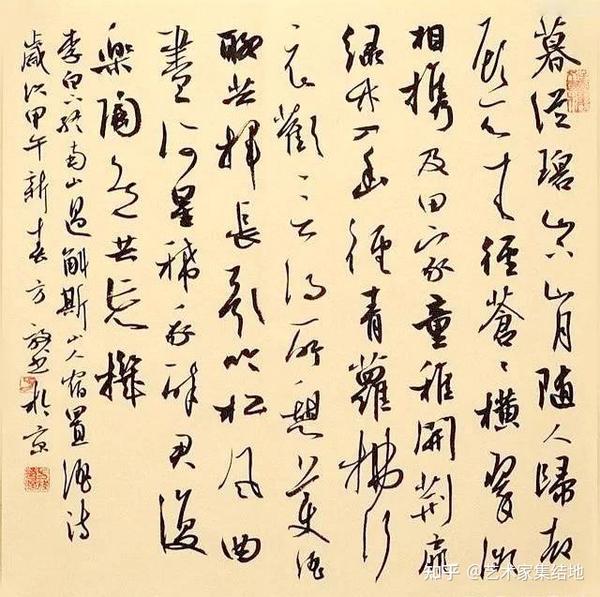 暮從碧山下山月隨人歸却
顧所來徑蒼蒼橫翠微
相攜及田家童稚開荆扉
緑竹入幽徑青蘿拂行
衣歡言得所憩美酒
聊共揮長歌吟松風曲
盡河星稀我醉君復
樂陶然共忘機
李白下終南山過斛斯山人宿置酒詩
歲次甲午新春方書於京
知乎 @艺术家集结地